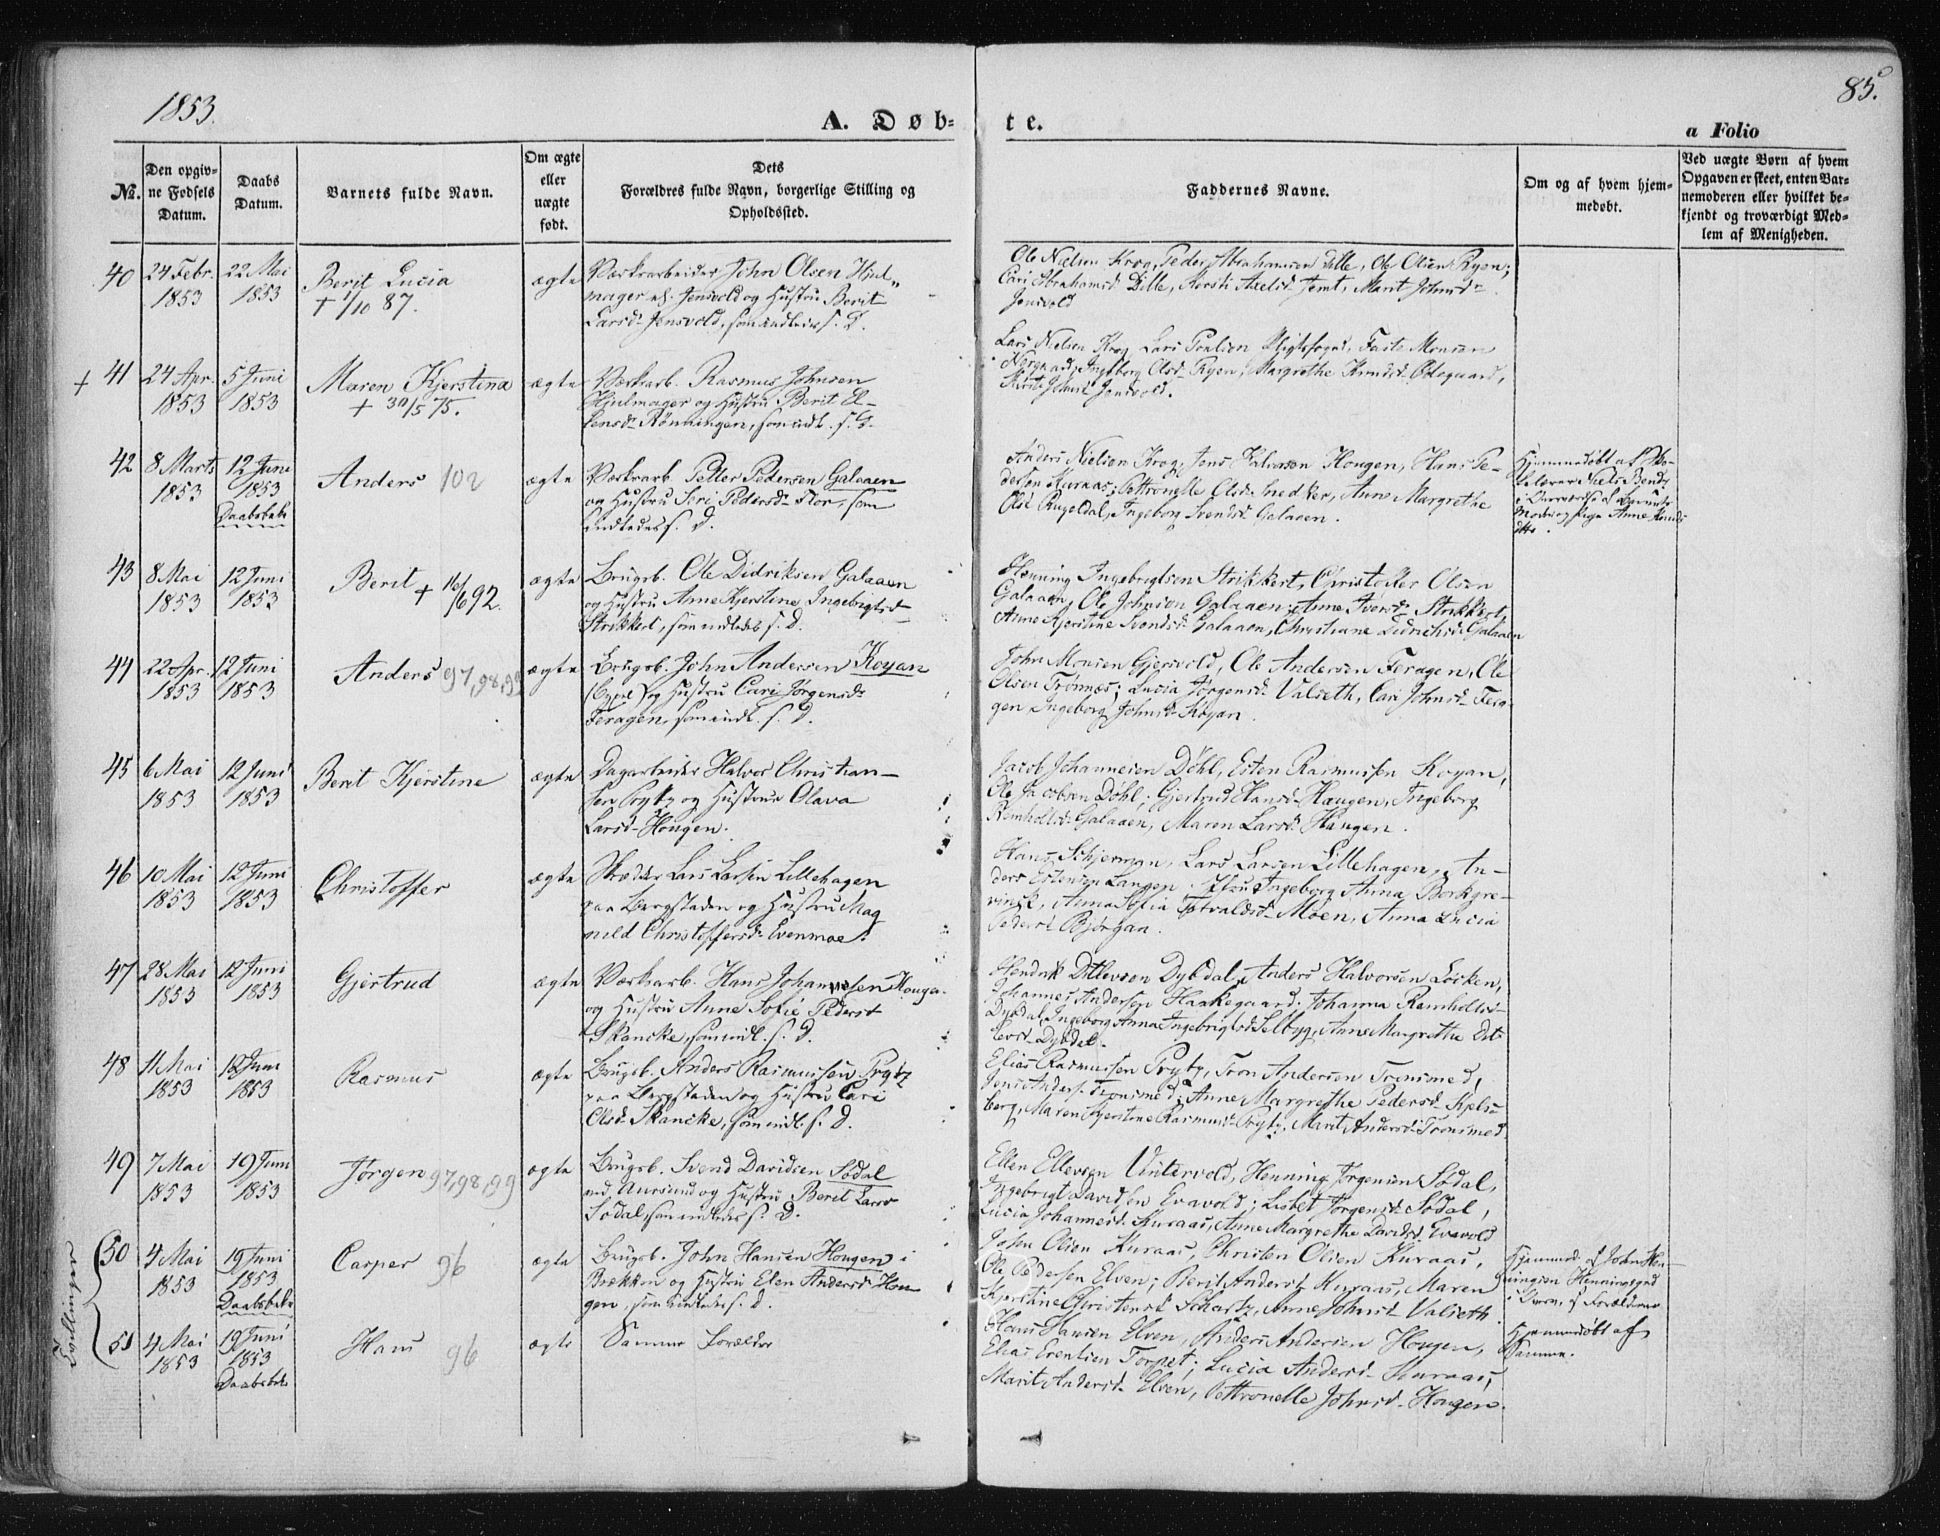 1853.
85.
A. Døb-
te.
a Folio
No.
Den opgiv-
ne Fødsels
Datum.
Daabs
Datum.
Barnets fulde Navn.
Om ægte
eller
uægte
født.
Dets
Forældres fulde Navn, borgerlige Stilling og
Opholdssted.
Faddernes Navne.
Om og af hvem hjem-
medøbt.
Ved uægte Børn af hvem
Opgaven er skeet, enten Bar-
nemoderen eller hvilket be-
kjendt og troværdigt Med-
lem af Menigheden.
40
24 Febr.
1853
22 Mai
1853
Berit Lucia
+ 1/10 87.
ægte
Værkarbeider John Olsen Hjul-
mager Jensvold og Hustru Berit
Larsd. Jensvold, som indledes s. D.
Ole Nielsen Krog, Peder Abrahamsen Dille, Ole Olsen Ryen;
Cari Abrahamsd Dille, Kersti Axelsd. Jemt, Marit Johnsd.
Jensvold
+
41
24 Apr.
1853
5 Juni
1853
Maren Kjerstina
+ 30/5 75.
ægte
Værkarb. Rasmus Johnsen
Hjulmager og Hustru Berit El-
lensd. Rönningen, som indl. s. D.
Lars Nielsen Krog, Lars Poulsen Faste Monsen
Ingeborg Olsd. Ryen, Margrethe Knudsd. Ödegaard,
Johnsd. Jensvold.
42
8 Marts
1853
12 Juni
1853
Daabsbek.
Anders 102
ægte
Værkarb. Petter Pedersen Galaaen
og Hustru Siri Pedersd. Flor, som
indledes s. D.
Anders Nielsen Krog, Jens Halvorsen Hougen, Hans Pe-
dersen Kuraas; Pettronelle Olsd. Snedker, Anne Margrethe
Olsd. Rugeldal, Ingeborg Svendsd. Galaaen.
Hjemmedøbt af
Niels Bendz
i Overværelse af
Moder og Anne
43
8 Mai
1853
12 Juni
1853
Berit + 16/6 92.
ægte
Brugsb. Ole Didriksen Galaaen
og Hustru Anne Kjerstine Ingebrigtsd.
Strikkert, som indledes s. D.
Henning Ingebrigtsen Strikkert, Christoffer Olsen
Galaaen, Ole Johnsen Galaaen; Anne Iversd. Strikkert,
Anne Kjerstine Svendsd. Galaaen, Christiane Didrichsd. Galaaen
44
22 Apr.
1853
12 Juni
1853
Anders 97,98,99
ægte
Brugsb. John Andersen Kojan
og Hustru Cari Jörgensd.
Feragen, som indl. s. D.
John Monsen Gjersvold, Ole Andersen Feragen, Ole
Olsen Trönnes; Lucia Jörgensd. Valseth, Cari Johnsd. Fera-
gen, Ingeborg Johnsd. Kojan.
45
6 Mai
1853
12 Juni
1853
Berit Kjerstine
ægte
Dagarbeider Halvor Christian-
sen Prytz og Hustrue Olava
Larsd. Hougen.
Jacob Johannesen Döhl, Esten Rasmussen Kojan,
Ole Jacobsen Döhl; Gjertrud Hansd. Haugen, Ingeborg
Remholtsd. Galaaen, Maren Larsd. Haugen.
46
10 Mai
1853
12 Juni
1853
Christoffer
ægte
Skrædder Lars Larsen Lillehagen
paa Bergstaden og Hustru Mag
nild Christoffersd. Evenmoe.
Hans Schjerman, Lars Larsen Lillehagen, An-
ders Estensen Langen; Ingeborg Anna Borkgre-
vinck, Anna Sofia Totvaldsd. Moen, Anna Lucia
Pedersd. Björgan.
47
28 Mai
1853
12 Juni
1853
Gjertrud
ægte
Værkarb. Hans Johannesen Hougen
og Hustru Anne Sofie Pedersd.
Skancke, som indl. s. D.
Hendrik Ditlevsen Dybdal, Anders Halvorsen Löcken,
Johannes Andersen Haakegaard; Johanna Remholtsd.
Dybdal, Ingeborg Anna Ingebrigtsd. Selbyg, Anne Margrethe
Dybdal.
48
11 Mai
1853
12 Juni
1853
Rasmus
ægte
Brugsb. Anders Rasmussen Prytz
paa Bergstaden og Hustru Cari
Olsd. Skancke, som indl. s. D.
Elias Rasmussen Prytz, Tron Andersen Tronsmed,
Jens Anders. Tronsmed; Anne Margrethe Pedersd. Kjels-
berg, Maren Kjerstine Rasmusd. Prytz, Marit Andersd. Tronsmed
49
7 Mai
1853
19 Juni
1853
Jörgen 97,98,99
ægte
Brugsb. Svend Davidsen Södal
ved Aursund og Hustru Berit Larsd
Södal, som indledes s. D.
Ellen Ellevsen Vintervold, Henning Jörgensen Södal,
Ingebrigt Davidsen Evavold; Lisbet Jörgensd. Södal,
Lucia Johannesd. Kuraas, Anne Margrethe Davidsd. Evavold
Tvillinger
50
4 Mai
1853
19 Juni
1853
Daabsbek.
Casper 96
ægte
Brugsb. John Hansen Hougen i
Brækken og Hustru Elen Andersd. Hou-
gen, som indledes s. D.
John Olsen Kuraas, Christen Olsen Kuraas,
Ole Pedersen Elven; Berit Andersd. Kuraas, Maren
Kjerstine Christensd. Anne Johnsd. Valseth.
Hjemmed. af John Hen-
ningsen Henningsgrd
i Overv. af Forældrene
51
4 Mai
1853
19 Juni
1853
Daabsbek.
Hans 96
ægte
Samme Forældre
Hans Hansen Elven, Anders Andersen Hougen,
Elias Erentsen Torpet; Lucia Andersd. Kuraas,
Marit Andersd. Elven, Pettronelle Johnsd. Hougen.
Hjemmedøbt af
Samme.